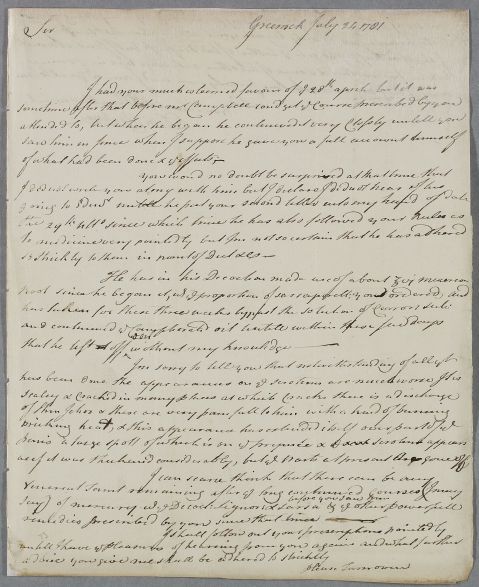 Sir Greenock July 24 1781
I had your much esteemed favour of ye 28th april but it was
sometime after that before mr Campbell could get ye Course prescribed by you
attended to, but when he began he continued it very Closely untill you
saw him in when I suppose he gave you a full account himself
of what had been done & ye effects
you would no doubt be surprised at that time that
I did not write you along with him but I declare I did not hear of his
going to untill he put your letter into my hand of date
the 29th ulto since which time he has also followed your Rules as
to medicine very but Im not so certain that he has adhered
so strickly to them in point of Diet &c
He has in his Decoction made use of about mezereon
root since he began it, wt ye proportion of sarsaparilla you ordered, and
has taken for these three weeks past the solution of Corros: subl:
and continued ye Camphorated oil untill within these few days
that he left it off without my knowledge
Im sorry to tell you that notwithstanding of all yt
has been done the appearances on ye are much worse Its
scaley & cracked in many places at which cracks there is a discharge
of thin Ichor & these are very painfull to him with a kind of burning
pricking heat, & this appearance has extended itself over part of ye
Penis a large spott of which is on ye prepuce & scrotum appears
as if it was thickened considerably, but ye is at present gone off
I can scarce think that there can be any
Venereal taint remaining after ye long continued courses (I may
say) of mercury wt ye Decoct: Lignor: & Sarsa & ye other powerfull
remedies prescribed by you since that time
I shall follow out your prescriptions pointedly
untill I have ye pleasure of hearing from you again and what further
advice you give me shall be adhered to strickly